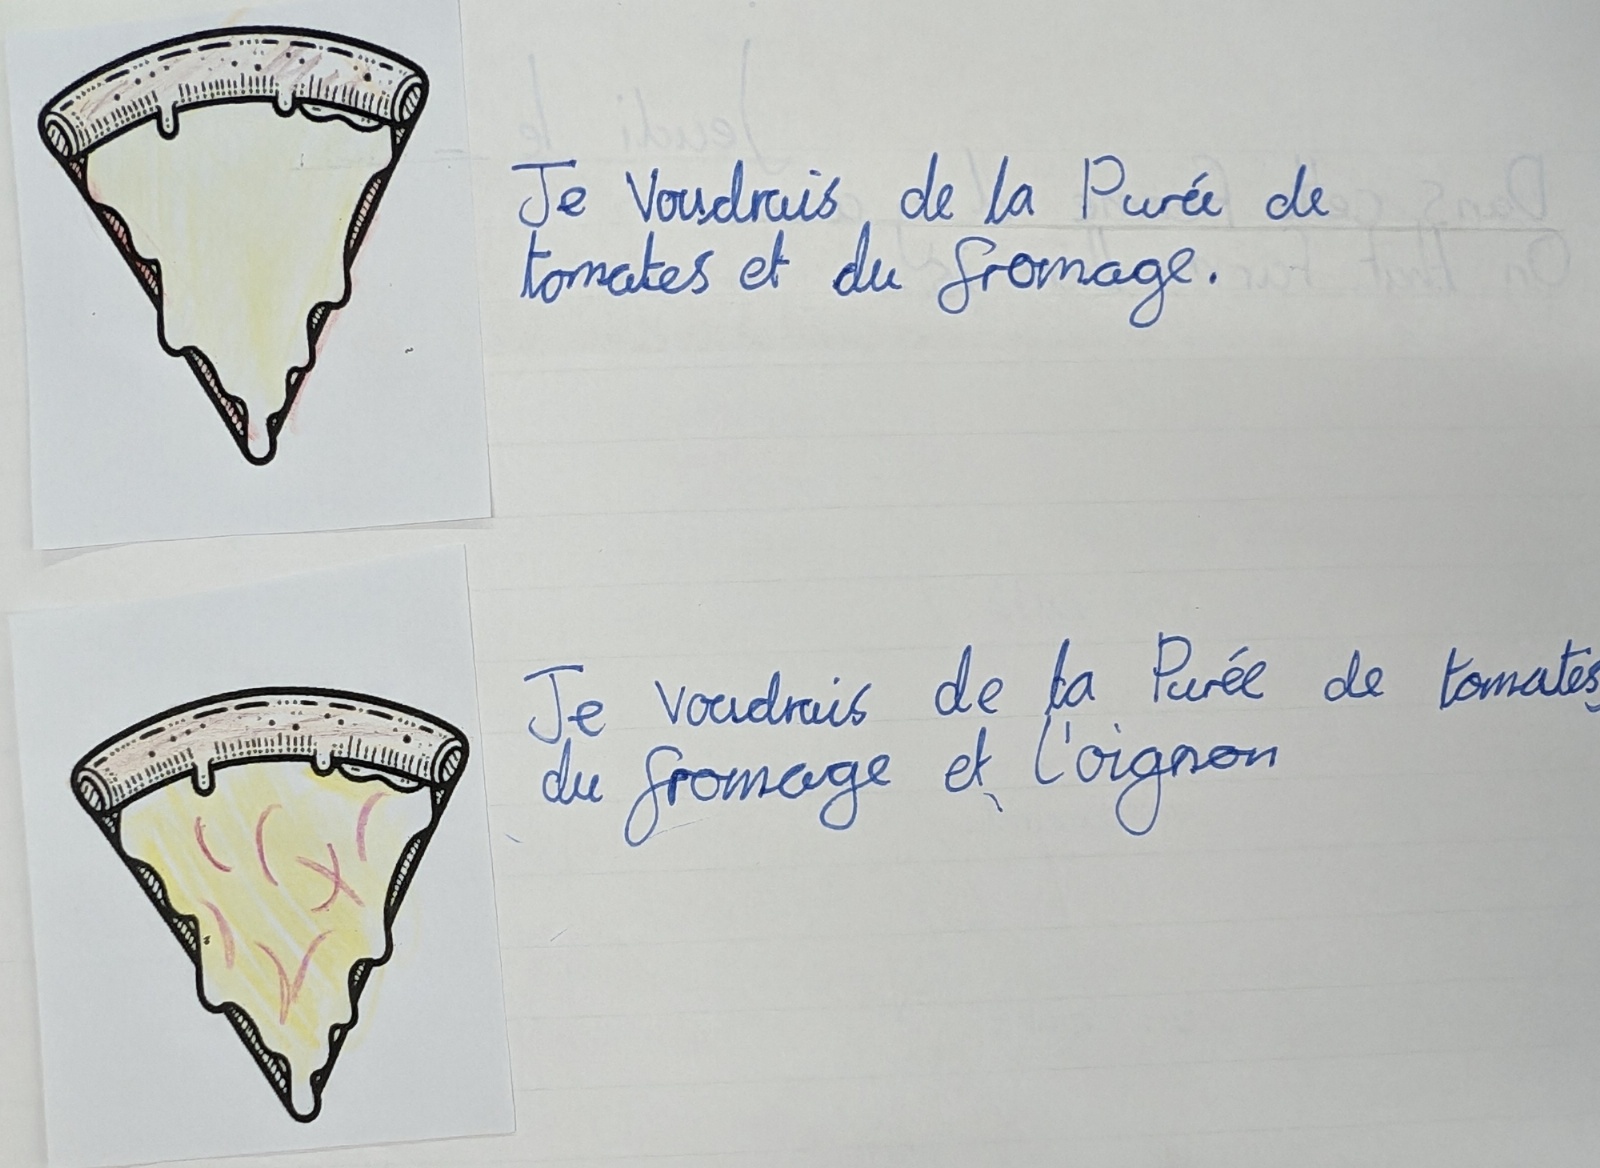 Je Voudrais de la Purée de
tomates et du fromage.
Je voudrais de la Purée de tomates
du fromage et l'oignon